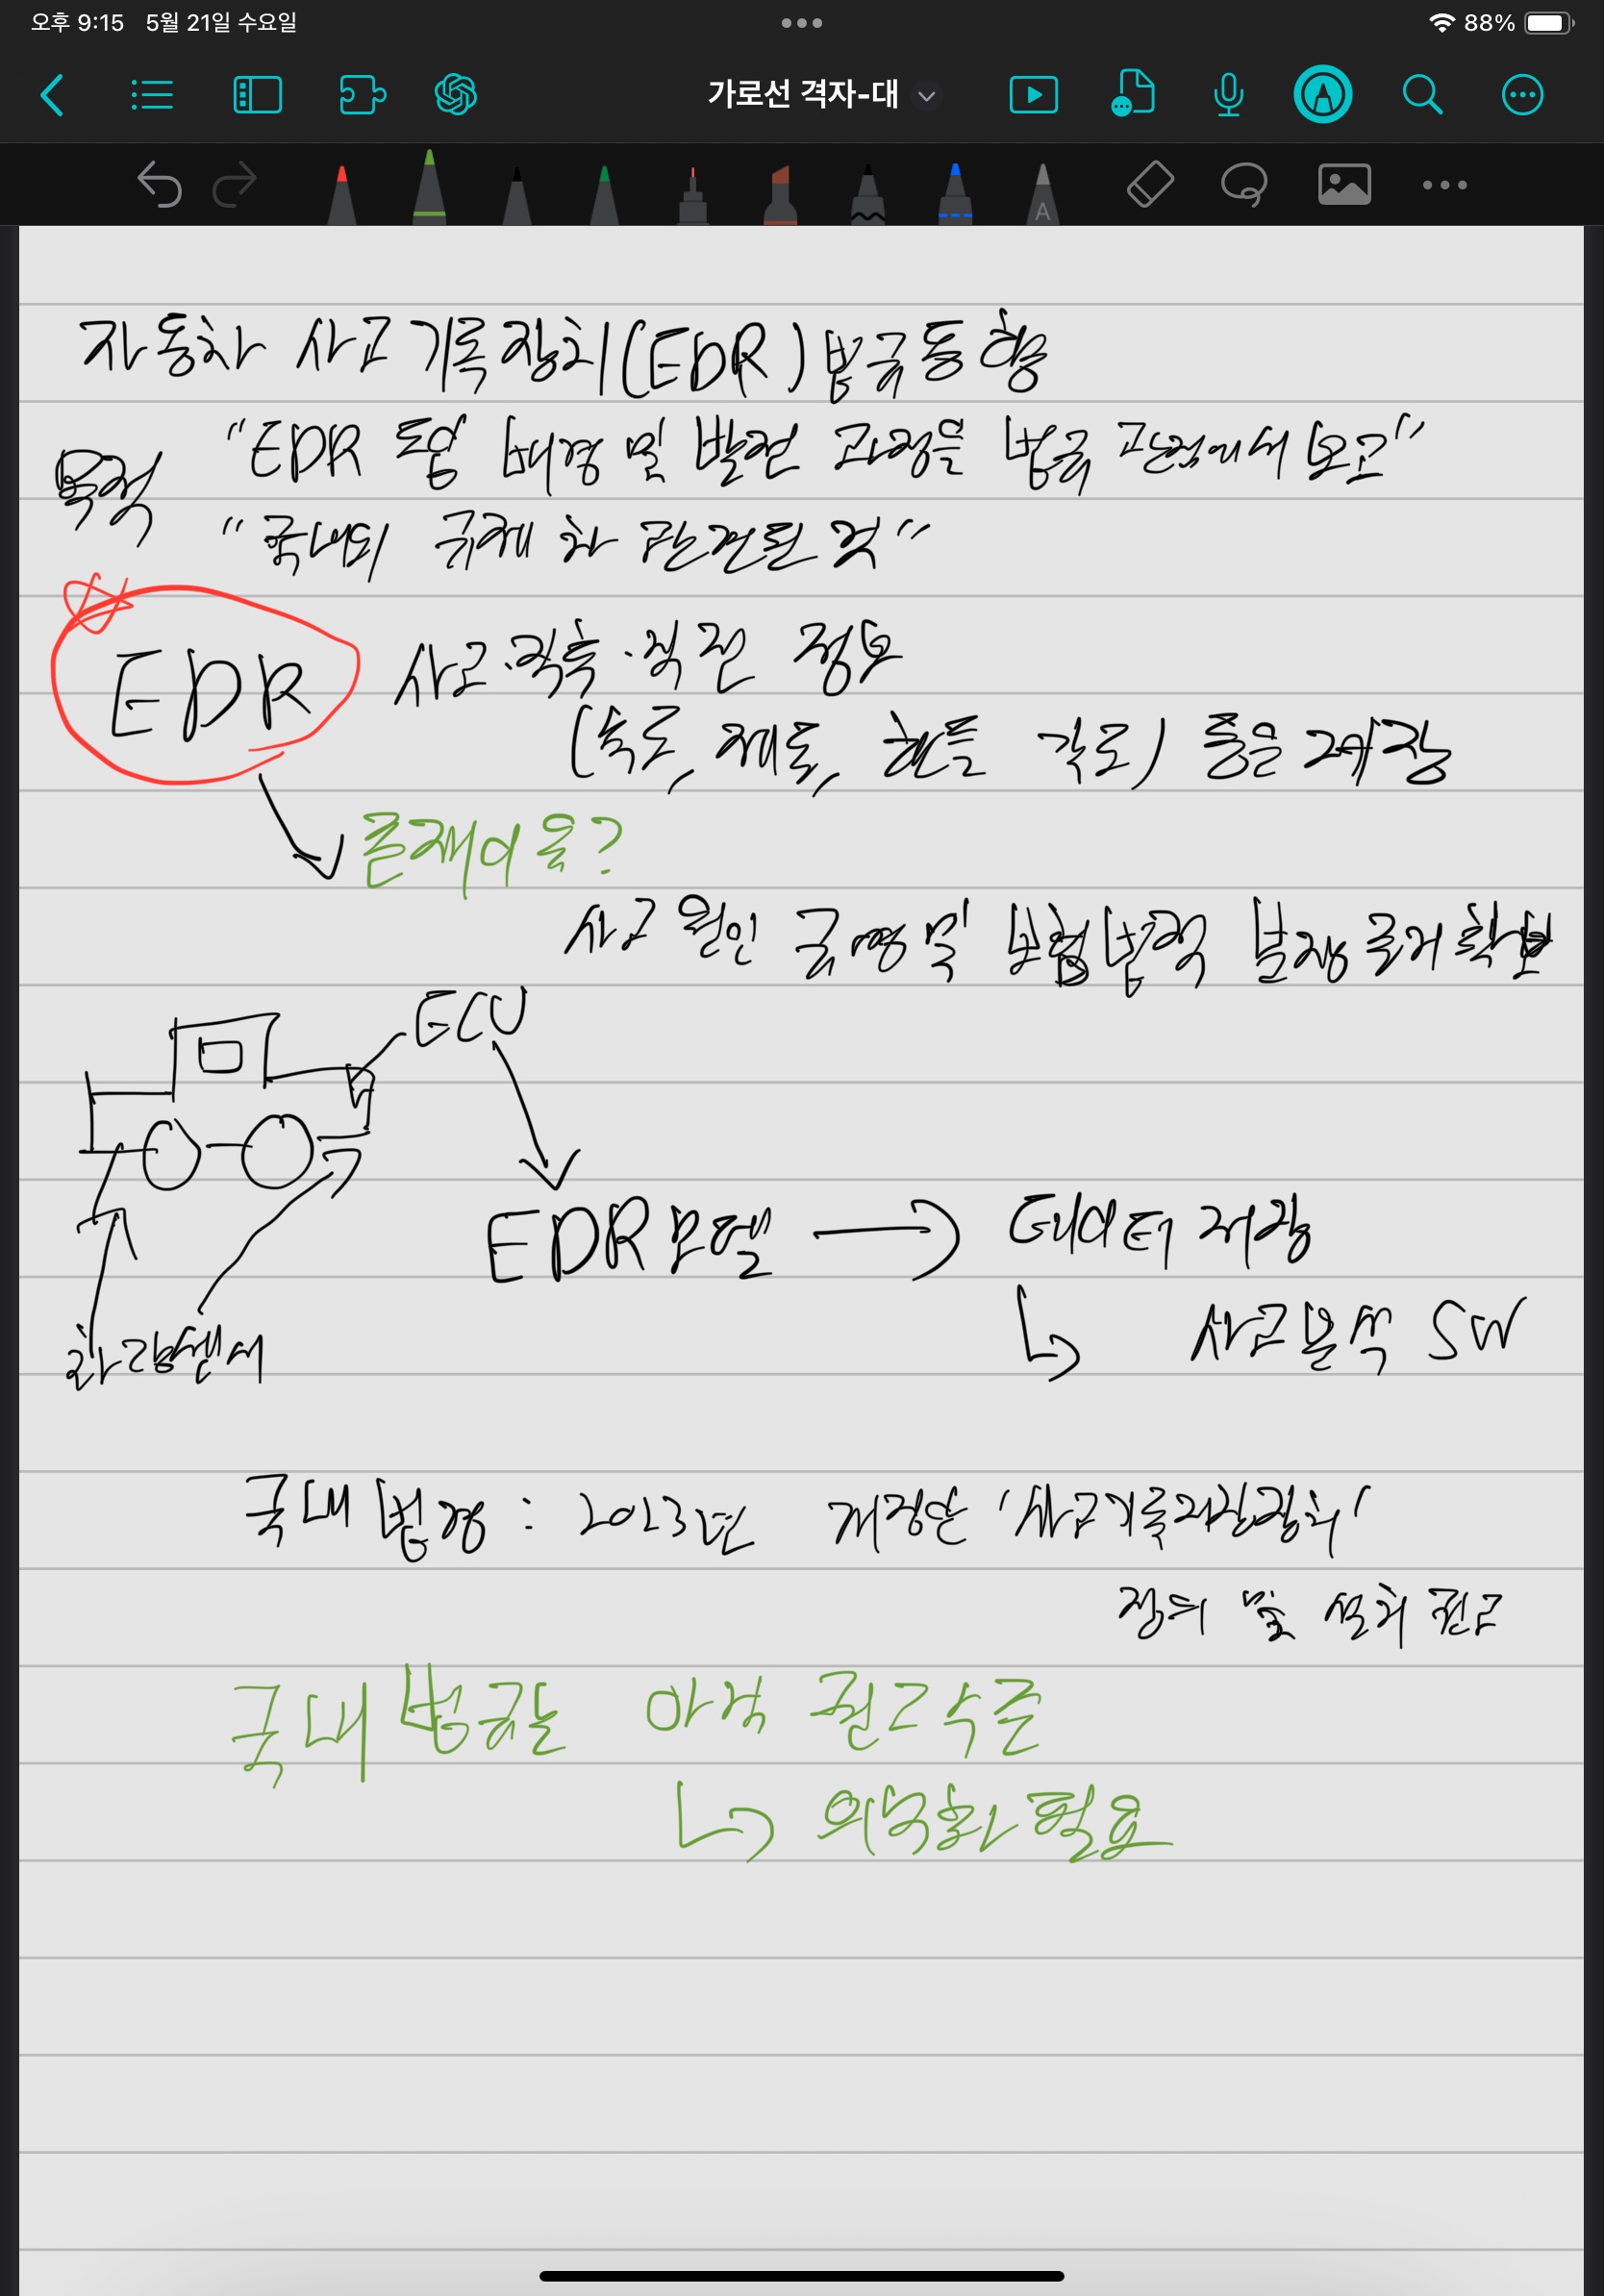 오후 9:15 5월 21일 수요일
88%
가로선 격자-대
A
자동차 사고 기록장치(EDR) 법규동향
목적
"EDR 등 배경 및 발전 과정을 법규 관점에서 보고"
"국내외 규제와 관련된 것"
EDR 사고·직후·직전 정보
(속도, 제동, 핸들 각도) 등을 저장
존재이유?
사고 원인 규명 및 보험 법적 분쟁 근거 확보
ECU
EDR 모델 → 데이터 저장
↳ 사고분석 SW
차량센서
국내 법령 : 2013년 개정안 '사고기록저장장치'
정의 및 설치 권고
국내법규는 아직 권고수준
↳ 의무화 필요